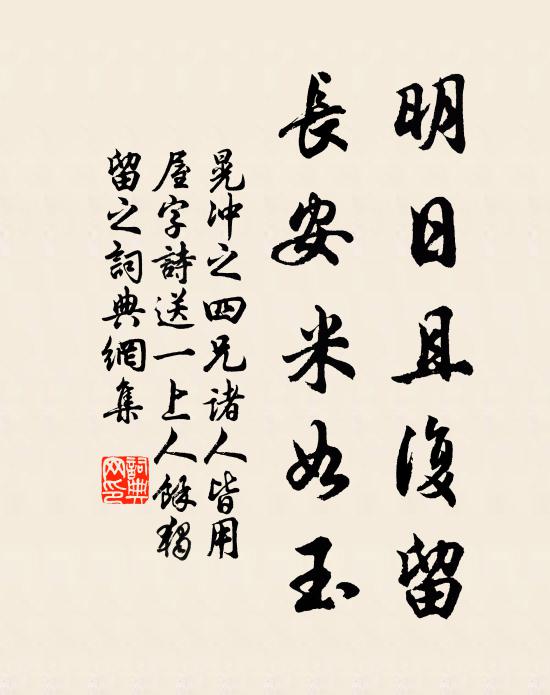 明日且復留
長安米如玉
晁沖之四兄諸人皆用
屋字詩送一上人餘獨
留之詞典網集
詞典网印